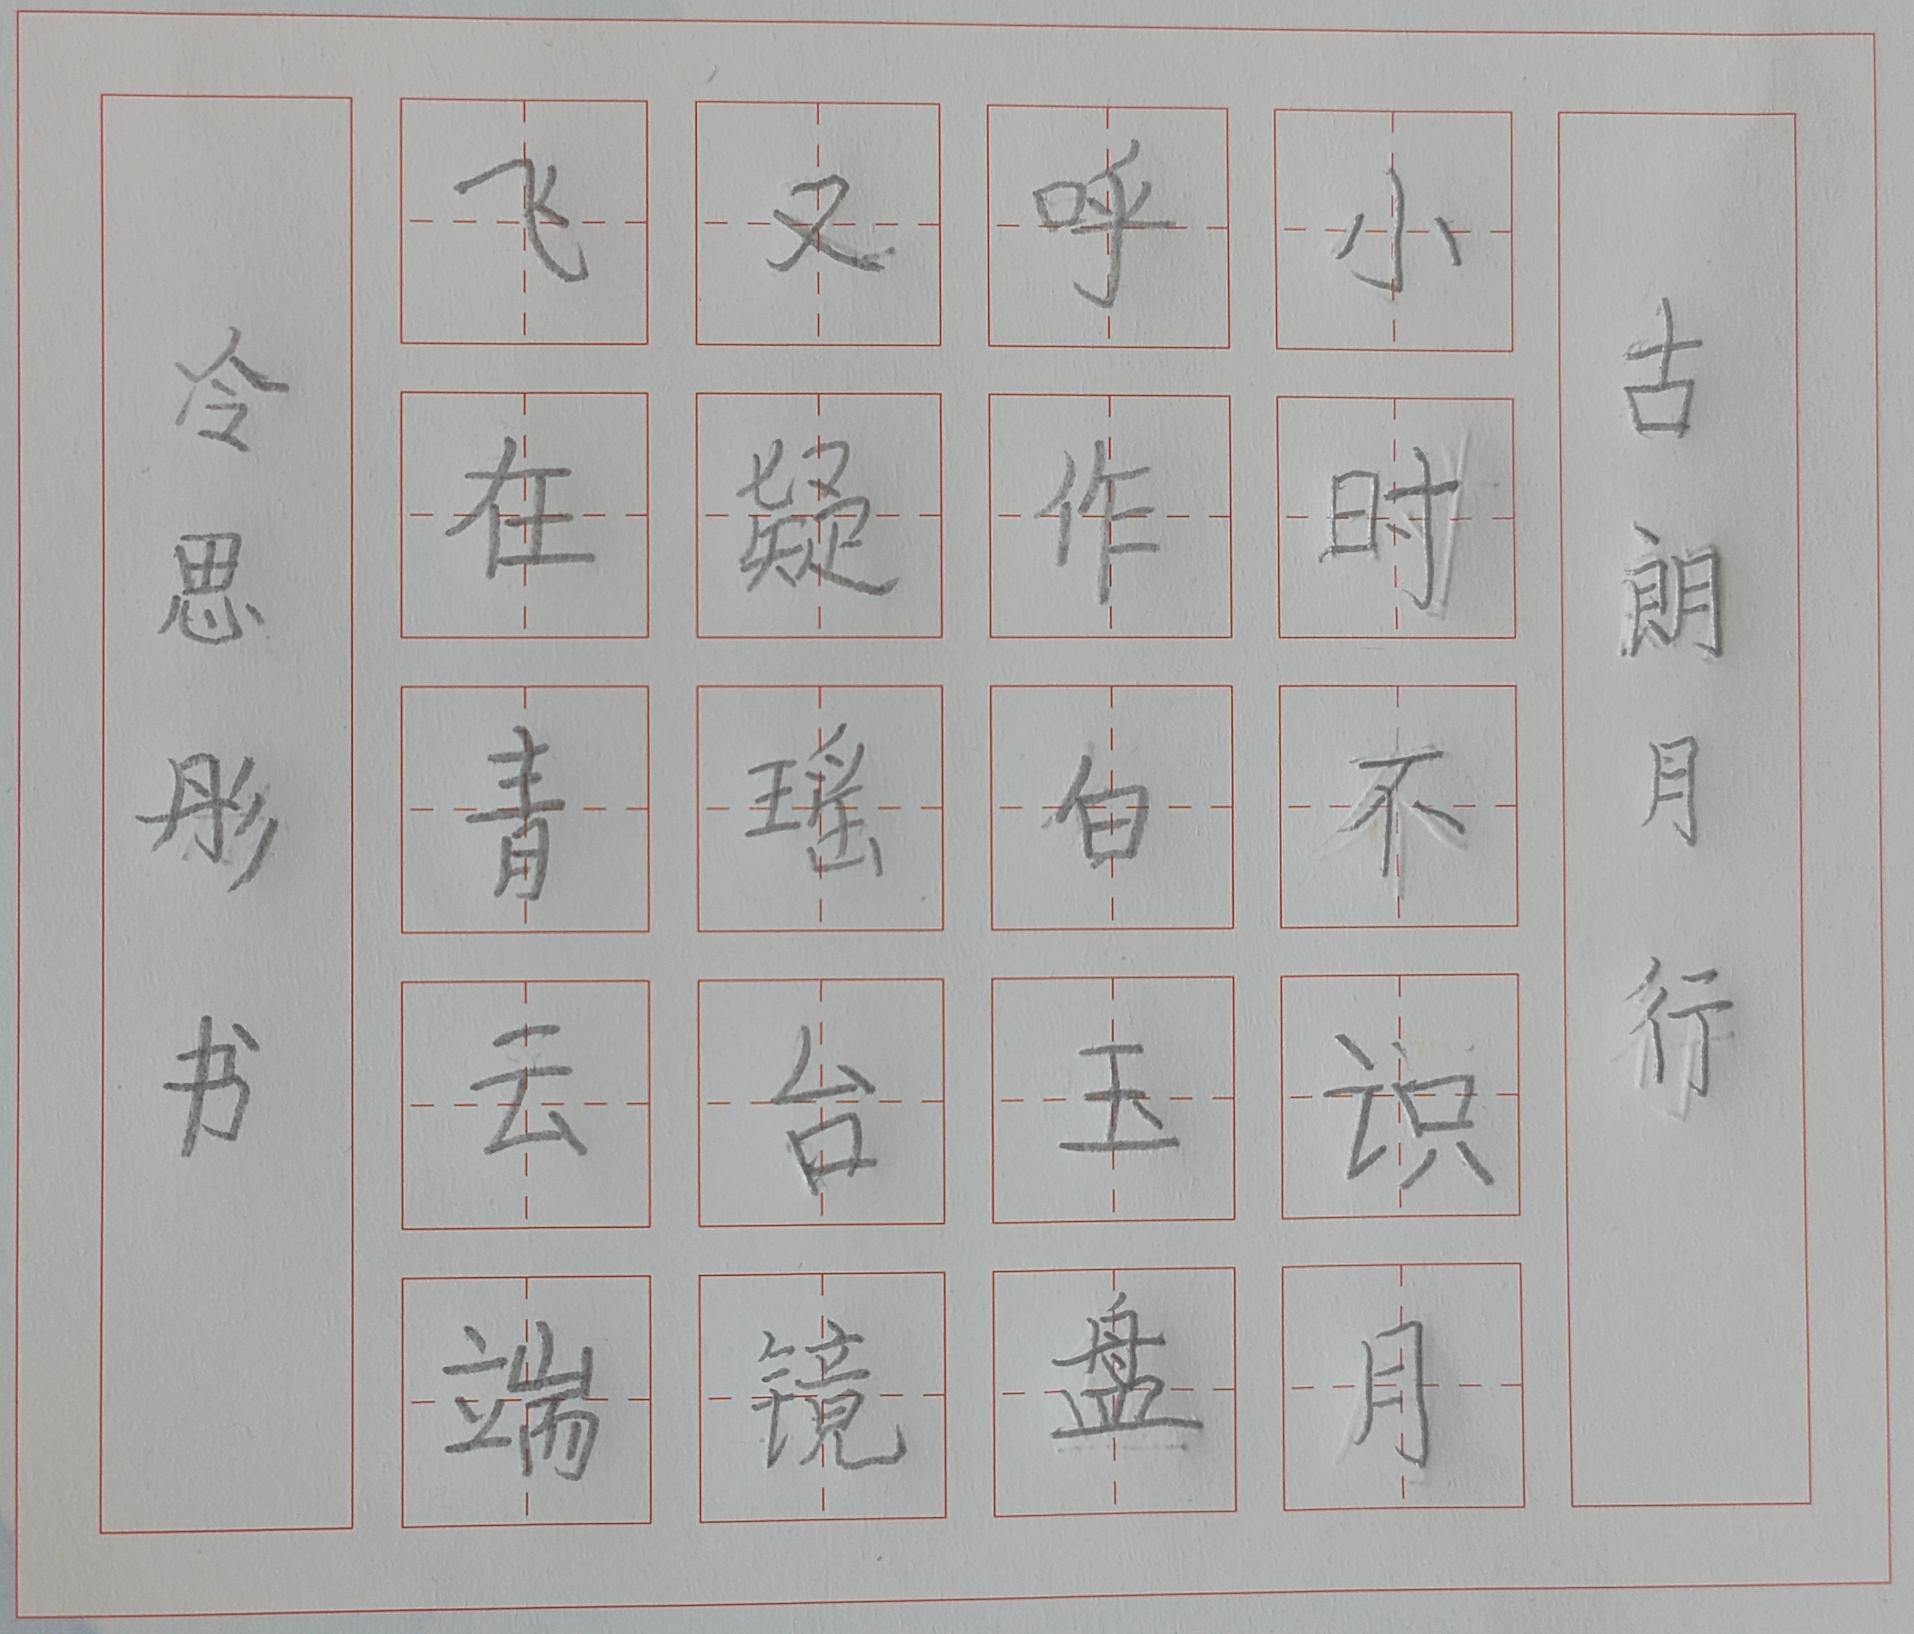 古朗月行
小时不识月
呼作白玉盘
又疑瑶台镜
飞在青云端
冷思彤书